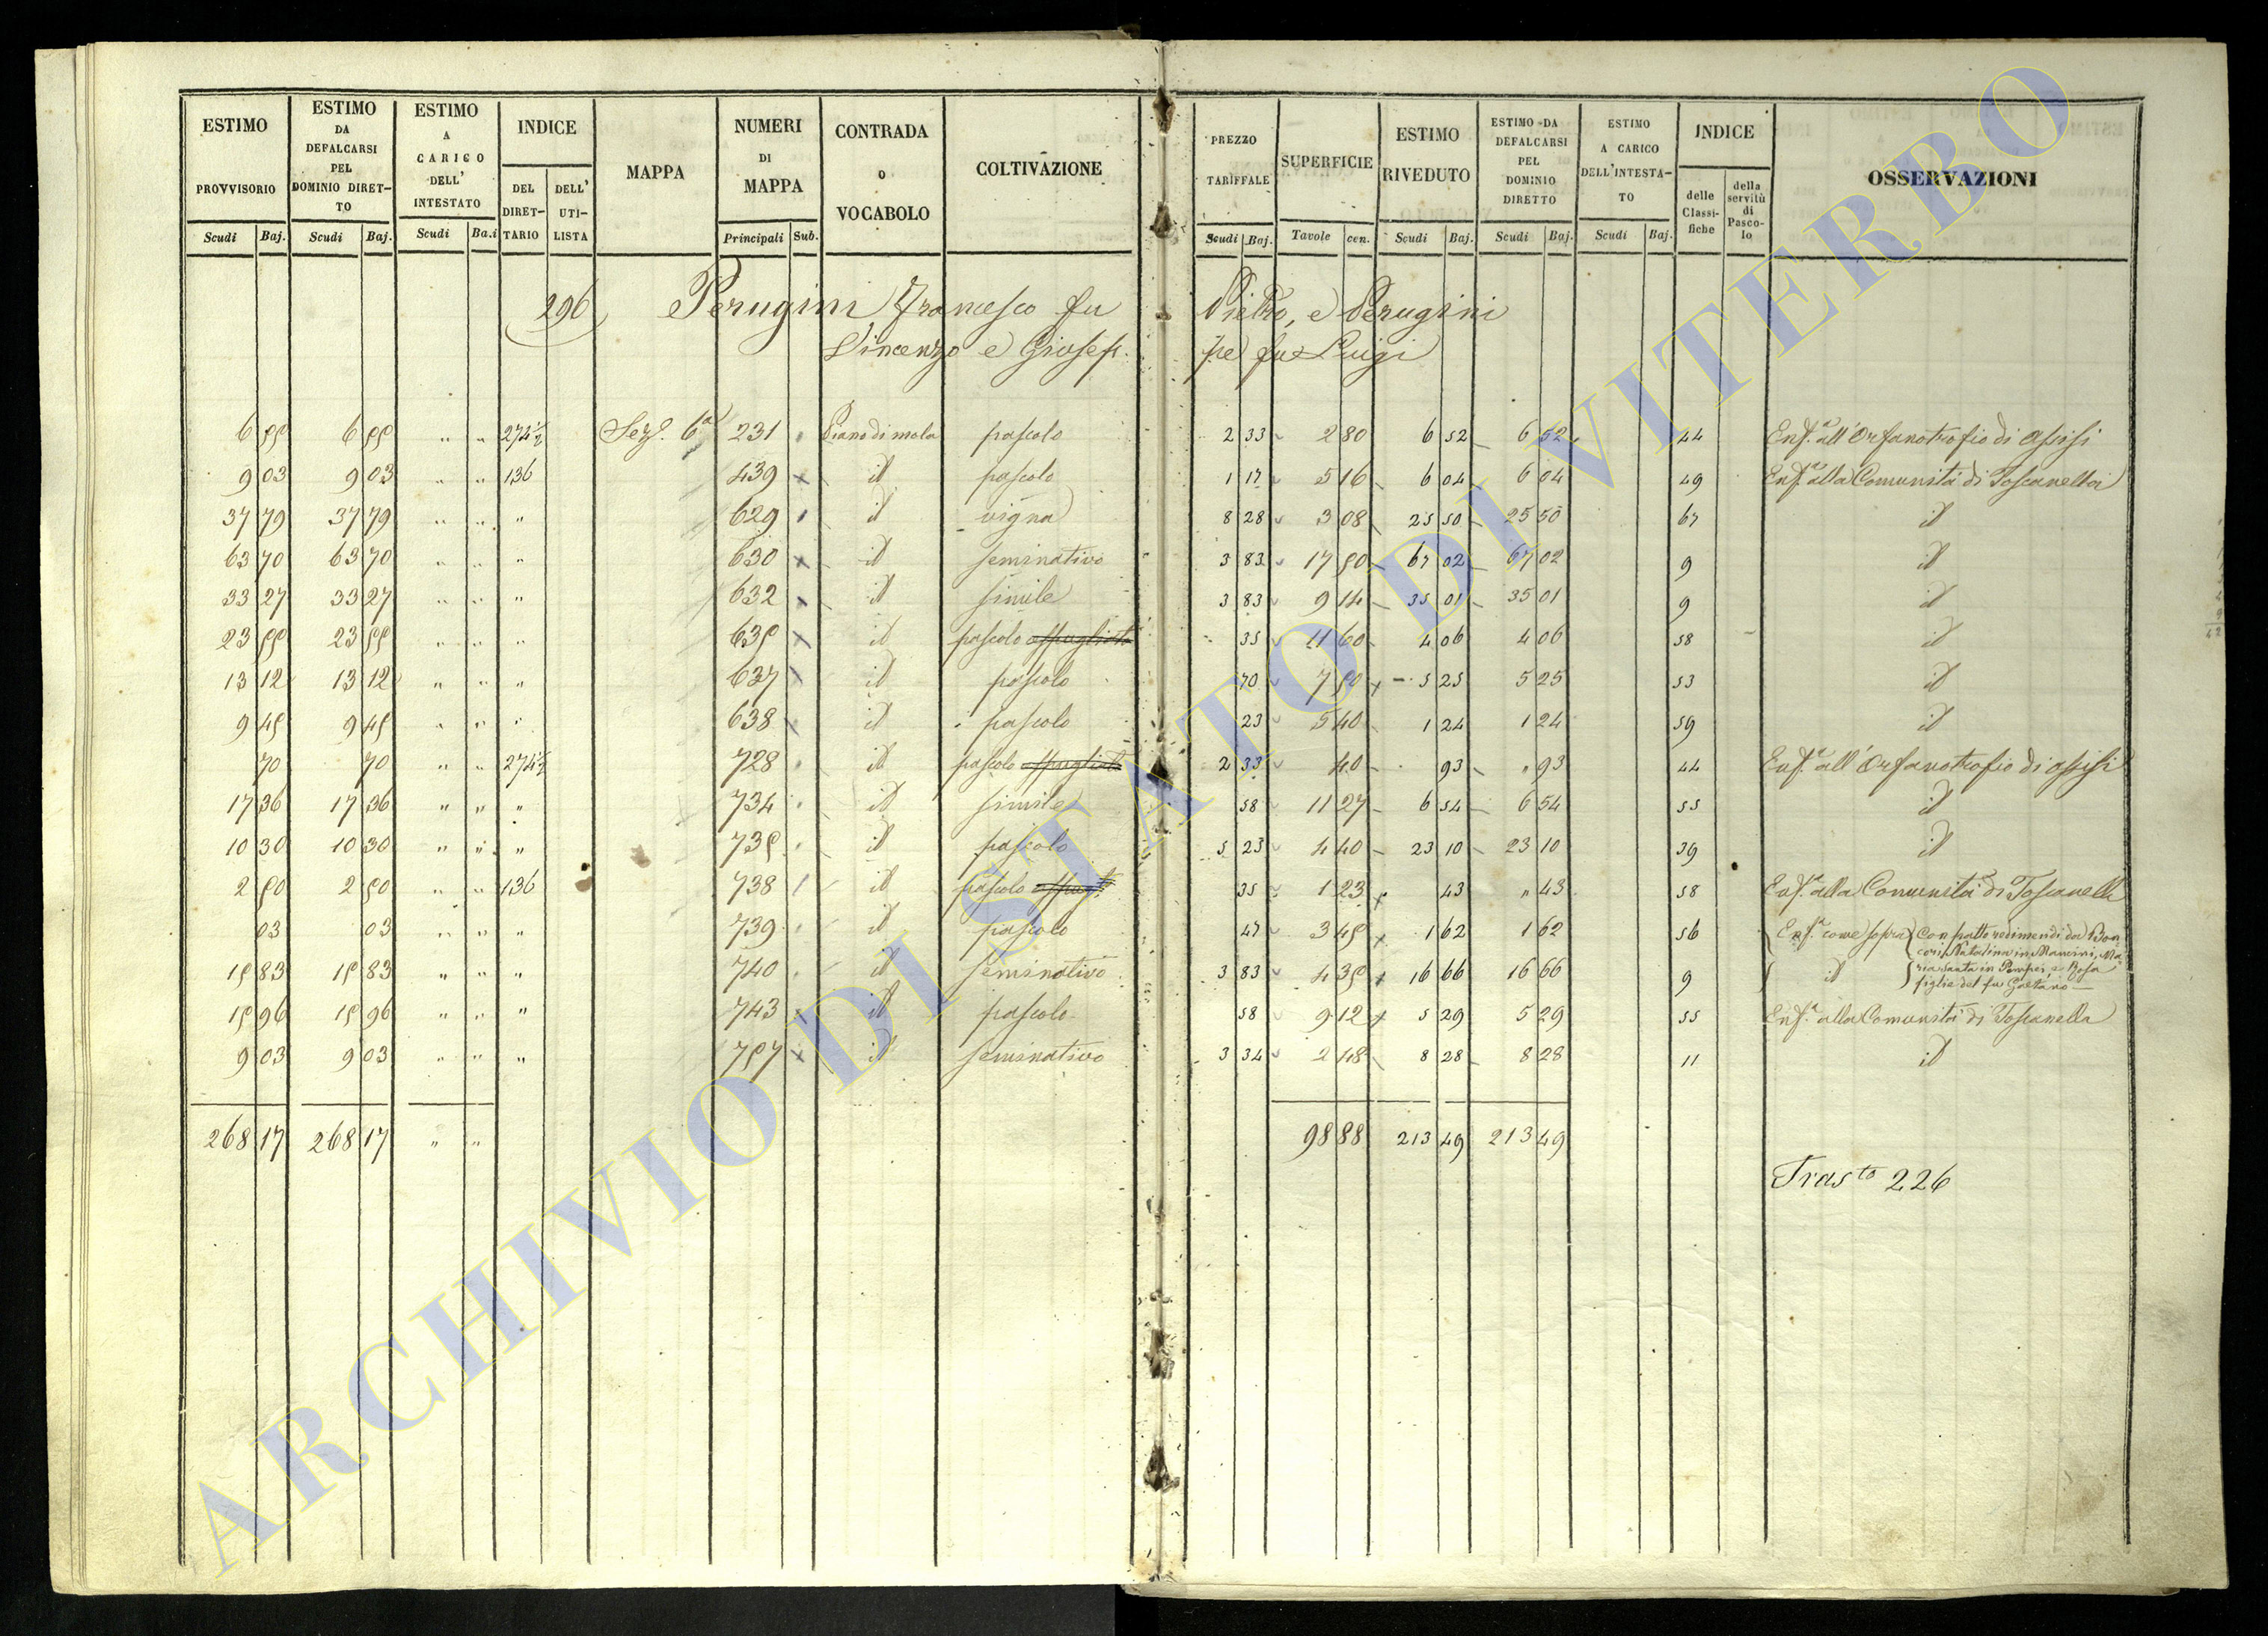 ESTIMO PROVVISORIO | ESTIMO DA DEFALCARSI PEL DOMINIO DIRETTO | ESTIMO A CARICO DELL' INTESTATO | INDICE | MAPPA | NUMERI DI MAPPA | CONTRADA O VOCABOLO | COLTIVAZIONE | PREZZO TARIFFALE | SUPERFICIE | ESTIMO RIVEDUTO | ESTIMO DA DEFALCARSI PEL DOMINIO DIRETTO | ESTIMO A CARICO DELL'INTESTATO | INDICE | OSSERVAZIONI
DEL DIRETTARIO | DELL' UTILISTA | delle Classifiche | della servitù di Pascolo
Scudi | Baj. | Scudi | Baj. | Scudi | Ba.i | Principali | Sub. | Scudi | Baj. | Tavole | cen. | Scudi | Baj. | Scudi | Baj. | Scudi | Baj.
296 Perugini Francesco fu Pietro, e Perugini
Vincenzo e Giusep. pe fu Luigi
6 55 | 6 55 | " | " | 274½ | Sez. 6a | 231 | Piano di mola | pascolo | 2 33 | 2 80 | 6 52 | 6 52 | 44 | Enf.a all'Orfanotrofio di Assisi
9 03 | 9 03 | " | " | 136 | 439 | id | pascolo | 1 17 | 5 16 | 6 04 | 6 04 | 49 | Enf.a alla Comunità di Toscanella
37 79 | 37 79 | " | " | " | 629 | id | vigna | 8 28 | 3 08 | 25 50 | 25 50 | 67 | id
63 70 | 63 70 | " | " | " | 630 | id | seminativo | 3 83 | 17 50 | 67 02 | 67 02 | 9 | id
33 27 | 33 27 | " | " | " | 632 | id | simile | 3 83 | 9 14 | 35 01 | 35 01 | 9 | id
23 55 | 23 55 | " | " | " | 635 | id | pascolo | 35 | 11 60 | 4 06 | 4 06 | 58 | id
13 12 | 13 12 | " | " | " | 637 | id | pascolo | 70 | 7 50 | 5 25 | 5 25 | 53 | id
9 45 | 9 45 | " | " | " | 638 | id | pascolo | 23 | 5 40 | 1 24 | 1 24 | 59 | id
70 | 70 | " | " | 274½ | 728 | id | pascolo | 2 33 | 40 | 93 | " 93 | 44 | Enf.a all'Orfanotrofio di Assisi
17 36 | 17 36 | " | " | " | 734 | id | simile | 58 | 11 27 | 6 54 | 6 54 | 55 | id
10 30 | 10 30 | " | " | " | 735 | id | pascolo | 5 23 | 4 40 | 23 10 | 23 10 | 39 | id
2 50 | 2 50 | " | " | 136 | 738 | id | pascolo | 35 | 1 23 | 43 | " 43 | 58 | Enf.a alla Comunità di Toscanella
03 | 03 | " | " | " | 739 | id | pascolo | 47 | 3 45 | 1 62 | 1 62 | 56 | Enf.a come sopra | Con patto redimendi da Bon
cori Natalina in Mancini, Ma
15 83 | 15 83 | " | " | " | 740 | id | seminativo | 3 83 | 4 35 | 16 66 | 16 66 | 9 | id | ria santa in Pompei, e Rosa
figlie del fu Gaetano
15 96 | 15 96 | " | " | " | 743 | id | pascolo | 58 | 9 12 | 5 29 | 5 29 | 55 | Enf.a alla Comunità di Toscanella
9 03 | 9 03 | " | " | " | 757 | id | seminativo | 3 34 | 2 48 | 8 28 | 8 28 | 11 | id
268 17 | 268 17 | " | " | 98 88 | 213 49 | 213 49
Tras.to 226
ARCHIVIO DI STATO DI VITERBO